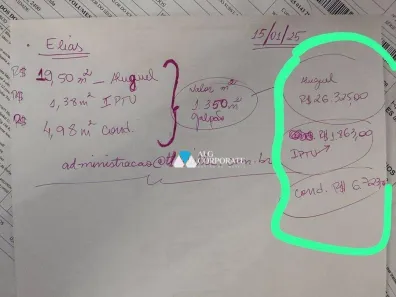 Elias
15/01/25
R$ 19,50 m² - Aluguel
R$ 1,38 m² IPTU
R$ 4,98 m² Cond.
Valor m²
1.350 m²
galpão
Aluguel
R$ 26.325,00
R$ 1.863,00
IPTU
cond. R$ 6.723,
administracao@
ALG
CORPORATE